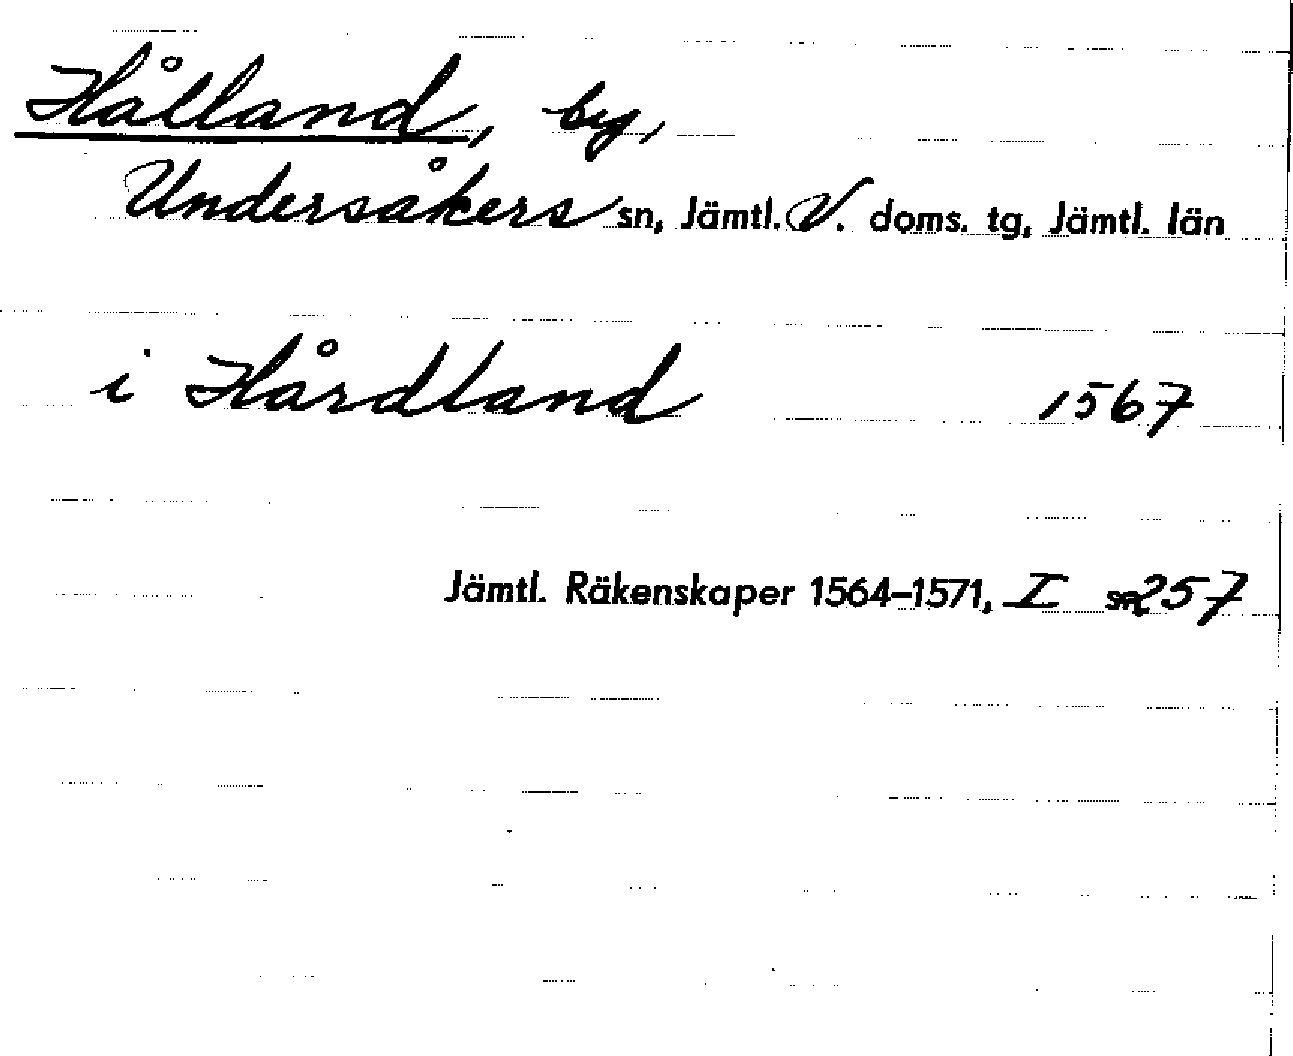 Hålland, by,
Undersåkers sn, Jämtl. V. doms. tg, Jämtl. län
i Hårdland 1567
Jämtl. Räkenskaper 1564–1571, I 257